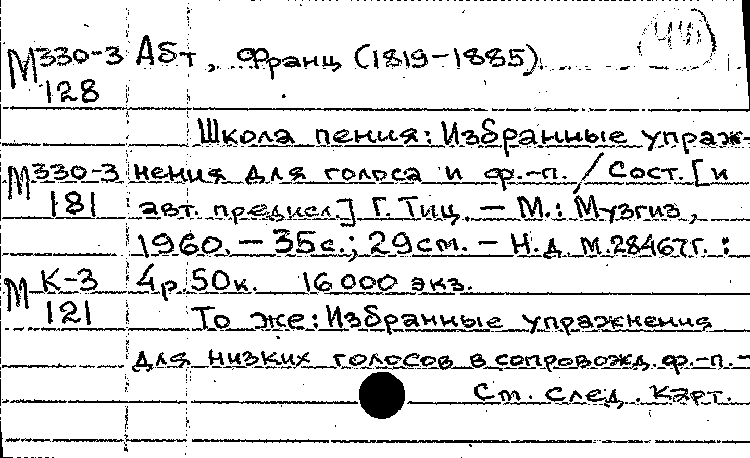 44
М330-3 Абт, Франц (1819-1885)
128
Школа пения: Избранные упраж-
М330-3 нения для голоса и ф.-п. / Сост. [и
181 авт. предисл.] Г. Тиц. — М.: Музгиз,
1960. — 35с.; 29см. — Н.д. М.28467г. :
М К-3 4р.50к. 16000 экз.
121 То же: Избранные упражнения
для низких голосов в сопровожд. ф.-п.-
См. след. карт.